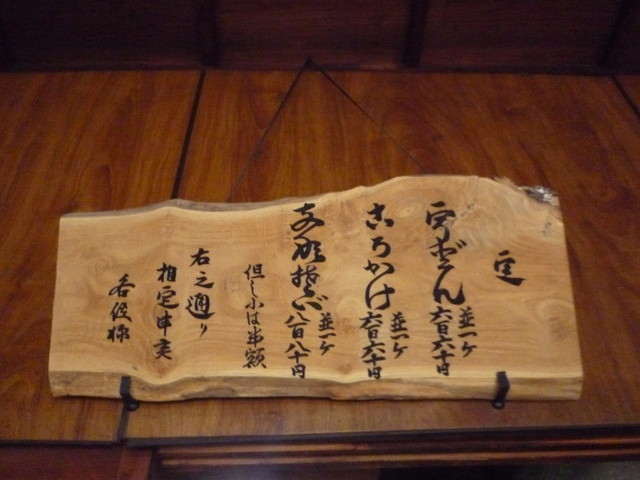 定
宇どん 並一ケ 六百六十円
ころかけ 並一ケ 六百六十円
支那そば 並一ケ 八百八十円
但し小は半額
右之通り
相定申候
各位様